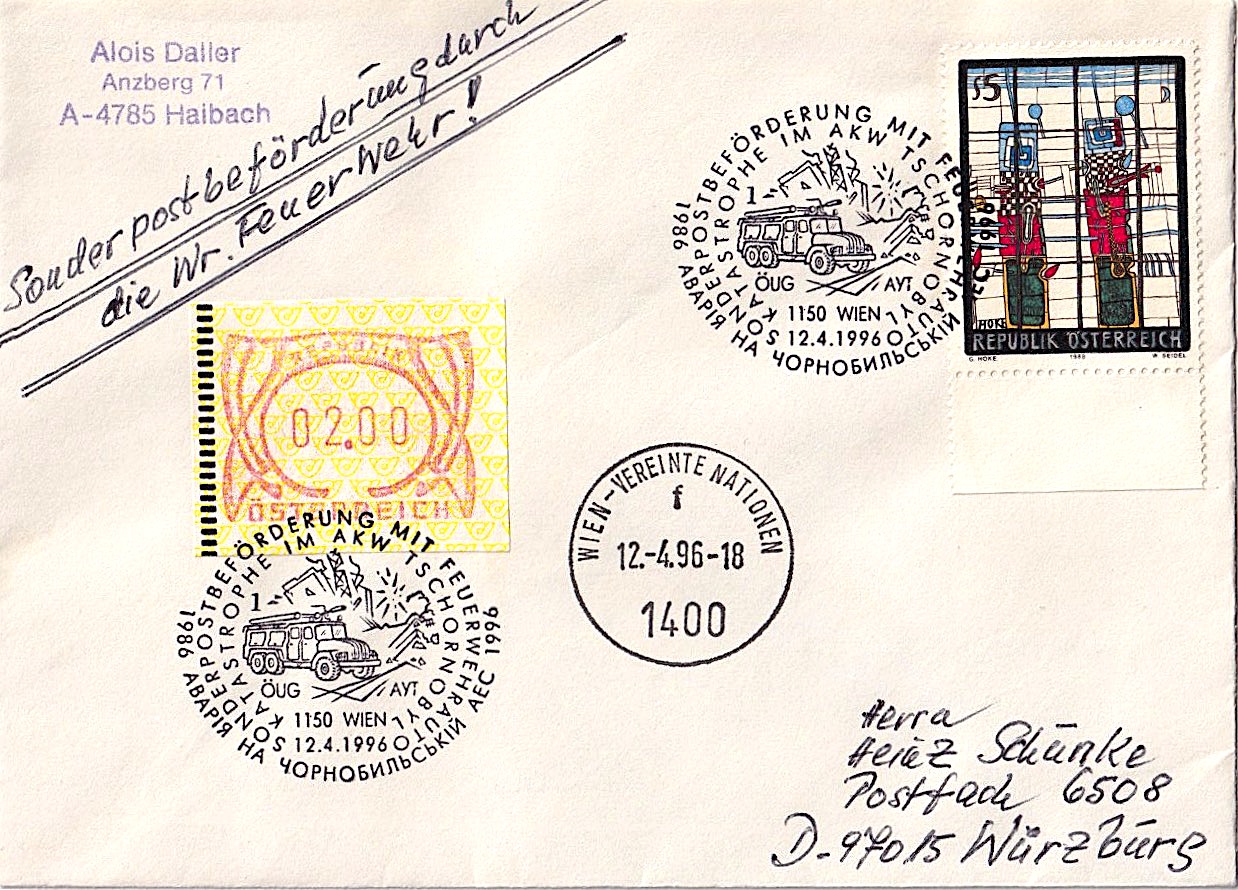 Alois Daller
Anzberg 71
A-4785 Haibach
Sonderpostbeförderung durch
die Wr. Feuerwehr!
SONDERPOSTBEFÖRDERUNG MIT FEUERWEHRAUTO
KATASTROPHE IM AKW TSCHORNOBYL
1986
1996
АВАРІЯ НА ЧОРНОБИЛЬСЬКІЙ АЕС
1
ÖUG
АУТ
1150 WIEN
12.4.1996
S5
HOKE
REPUBLIK ÖSTERREICH
G. HOKE
1988
W. SEIDEL
REPUBLIK
02.00
ÖSTERREICH
SONDERPOSTBEFÖRDERUNG MIT FEUERWEHRAUTO
KATASTROPHE IM AKW TSCHORNOBYL
1986
1996
АВАРІЯ НА ЧОРНОБИЛЬСЬКІЙ АЕС
1
ÖUG
АУТ
1150 WIEN
12.4.1996
WIEN-VEREINTE NATIONEN
f
12.-4.96-18
1400
Herrn
Heinz Schünke
Postfach 6508
D-97015 Würzburg